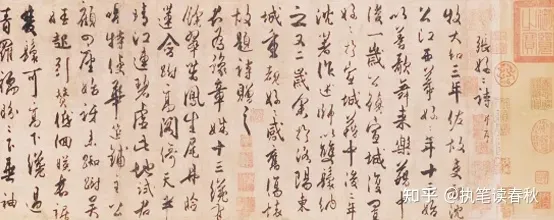 張好好詩
牧大和三年佐故吏部沈
公江西幕好好年十三始
以善歌舞來樂籍中
後一歲公鎮宣城復置
好好於宣城籍中後二年
沈著作述師以雙鬟納
之又二歲余於洛陽東
城重覩好好感舊傷懷
故題詩贈之
君為豫章姝十三纔有
餘翠茁鳳生尾丹臉
蓮含跗高閣倚天半
晴江連碧虛此地試君
唱特使華筵鋪主公
顧四座始訝來踟躕吳
娃起引贊低佪暎長裾
雙鬟可高下纔過
青羅襦盼盼下垂袖
知乎 @执笔读春秋